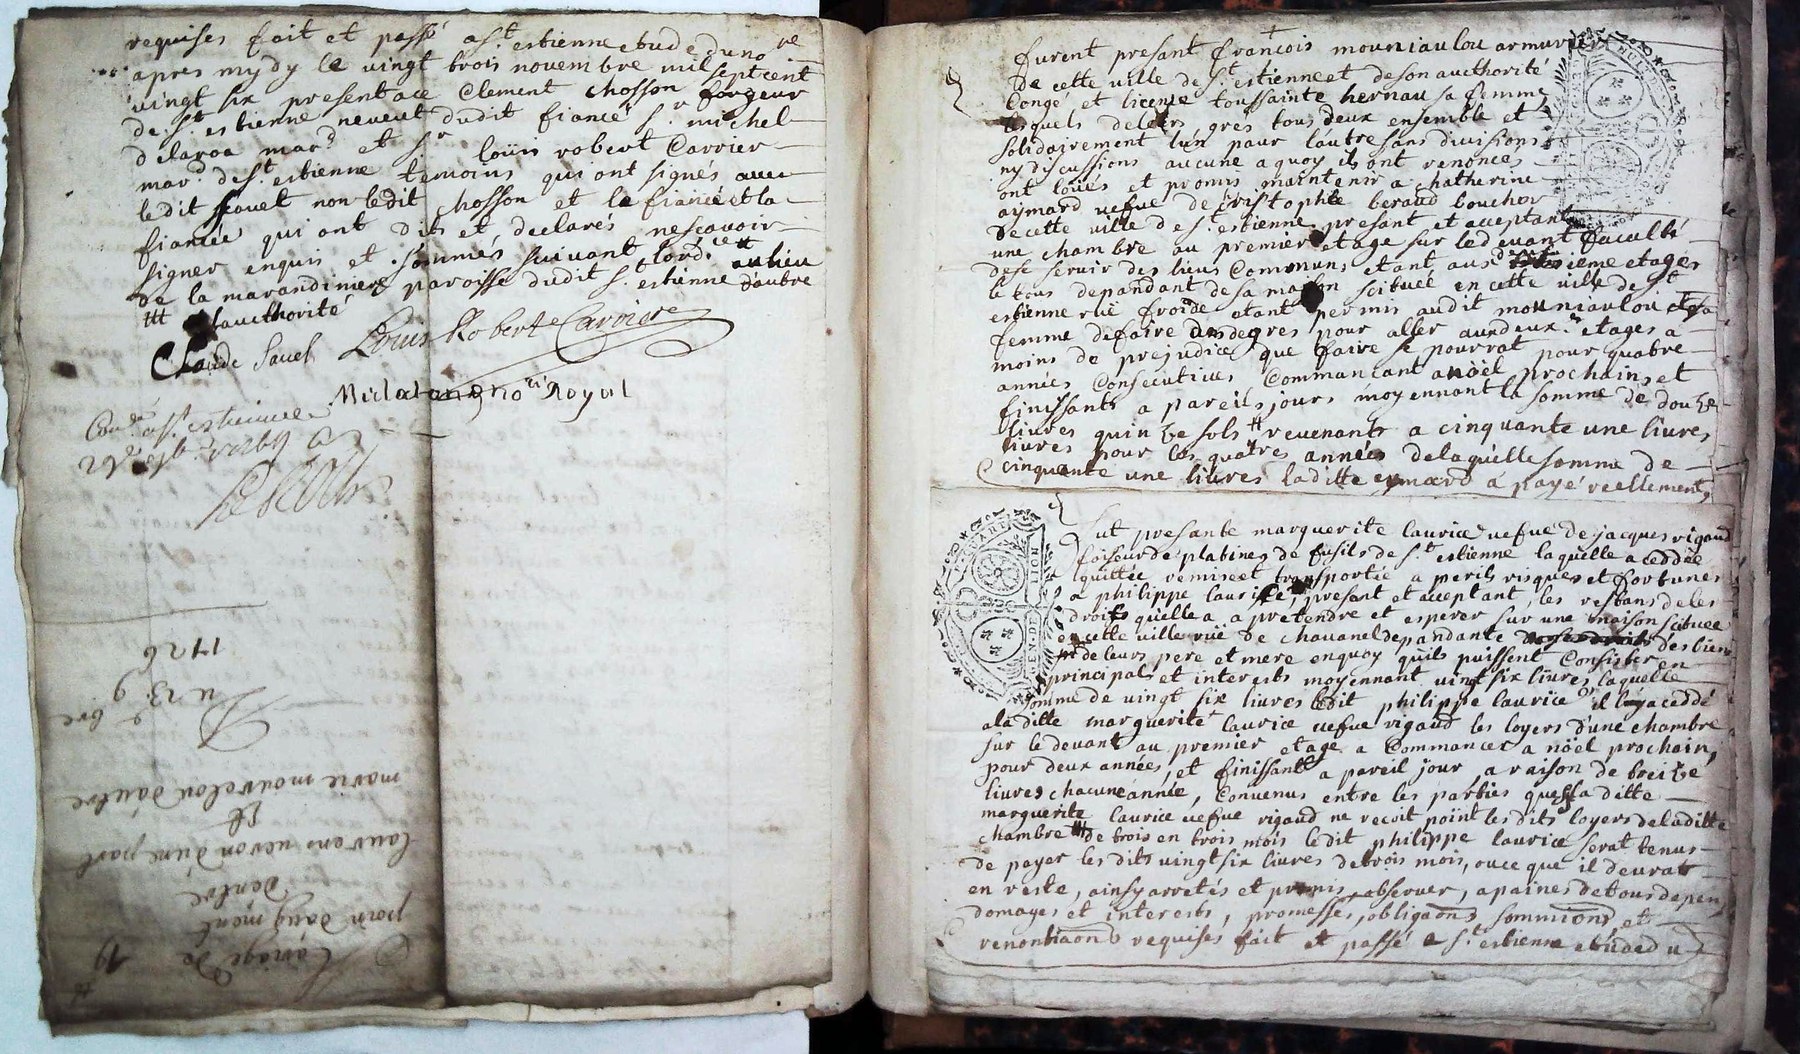 requises fait et passé a s.t estienne etude du no.re
apres mydy le vingt trois novembre mil sept cent
vingt six presentace Clement chosson forgeur
de s.t estienne neveut dudit fiancé s.r michel
delaroa mar.d et s.r loüis robert Carrier
mar.d de s.t estienne temoins qui ont signés avec
ledit sauet non ledit chosson et le fiancé et la
fiancée qui ont dit et declarés ne scavoir
signer enquis et sommés suivant lord.ce au lieu
de la marandiniere paroisse dudit s.t estienne d'autre
lauthorité
Claude Sauet Louis Robert Carriere
no.re Royal
Con.lé a s.t estienne
1726
Du 23. 9.bre
marie mourelou dautre
Et
laurens neron d'une part
Dentre
pour daugment
Mariage de
19
furent presant françois mouniaulou armurier
de cette ville de s.t estienne et de son aucthorité
Congé et licence toussainte hernau sa femme
lesquels de leurs grés tous deux ensemble et
solidairement lun pour lautre sans divisions
ny discussions aucune a quoy ils ont renoncés
ont loüés et promis maintenir a Chatherine
aymard vefue de cristophle beraud boucher
de cette ville de s.t estienne presant et acceptant
une chambre au premier etage sur le devant faculté
de se servir des lieus Communs etant aux ieme etages
le tous depandant de sa maison scituée en cette ville de s.t
estienne rüe froide etant permis audit mouniaulou et sa
femme de faire des degres pour aller aux deux.e etages a
moins de prejudice que faire se pourrat pour quatre
années Consecutives Commancant a nöel prochains et
finissants a pareils jours moyennant la somme de douze
livres quinze sols revenants a cinquante une livres
livres pour les quatres années de laquelle somme de
cinquante une livres laditte eymard a payé reellement
fut presante marguerite laurice vefue de jacques rigaud
foiseur de platines de fusils de s.t estienne laquelle a ceddée
quittée remise et transportée a perils risques et fortunes
a philippe laurice, presant et acceptant, les restans de les
droits quelle a a pretendre et esperer sur une maison scituee
en cette ville rüe de chauanel depandante des biens
de leurs pere et mere en quoy quils puissent Consister en
principals et interests moyennant vingt six livres laquelle
somme de vingt six livres ledit philippe laurice il luy a ceddé
a laditte marguerite laurice vefue rigaud les loyers d'une chambre
sur le devant au premier etage a Commancer a nöel prochain,
pour deux années, et finissant a pareil jour, a raison de treize
livres chacune année, Convenus entre les parties que sy la ditte
marguerite laurice vefue rigaud ne recoit point les dits loyers de laditte
chambre de trois en trois mois ledit philippe laurice serat tenus
de payer les dits vingt six livres de trois mois, ou ce que il deurat
en reste, ainsy arretés et promis observer, a paines de tous depens
domages et interests, promesses, obligaons sommions et
renontiaons requises fait et passé a s.t estienne etude du